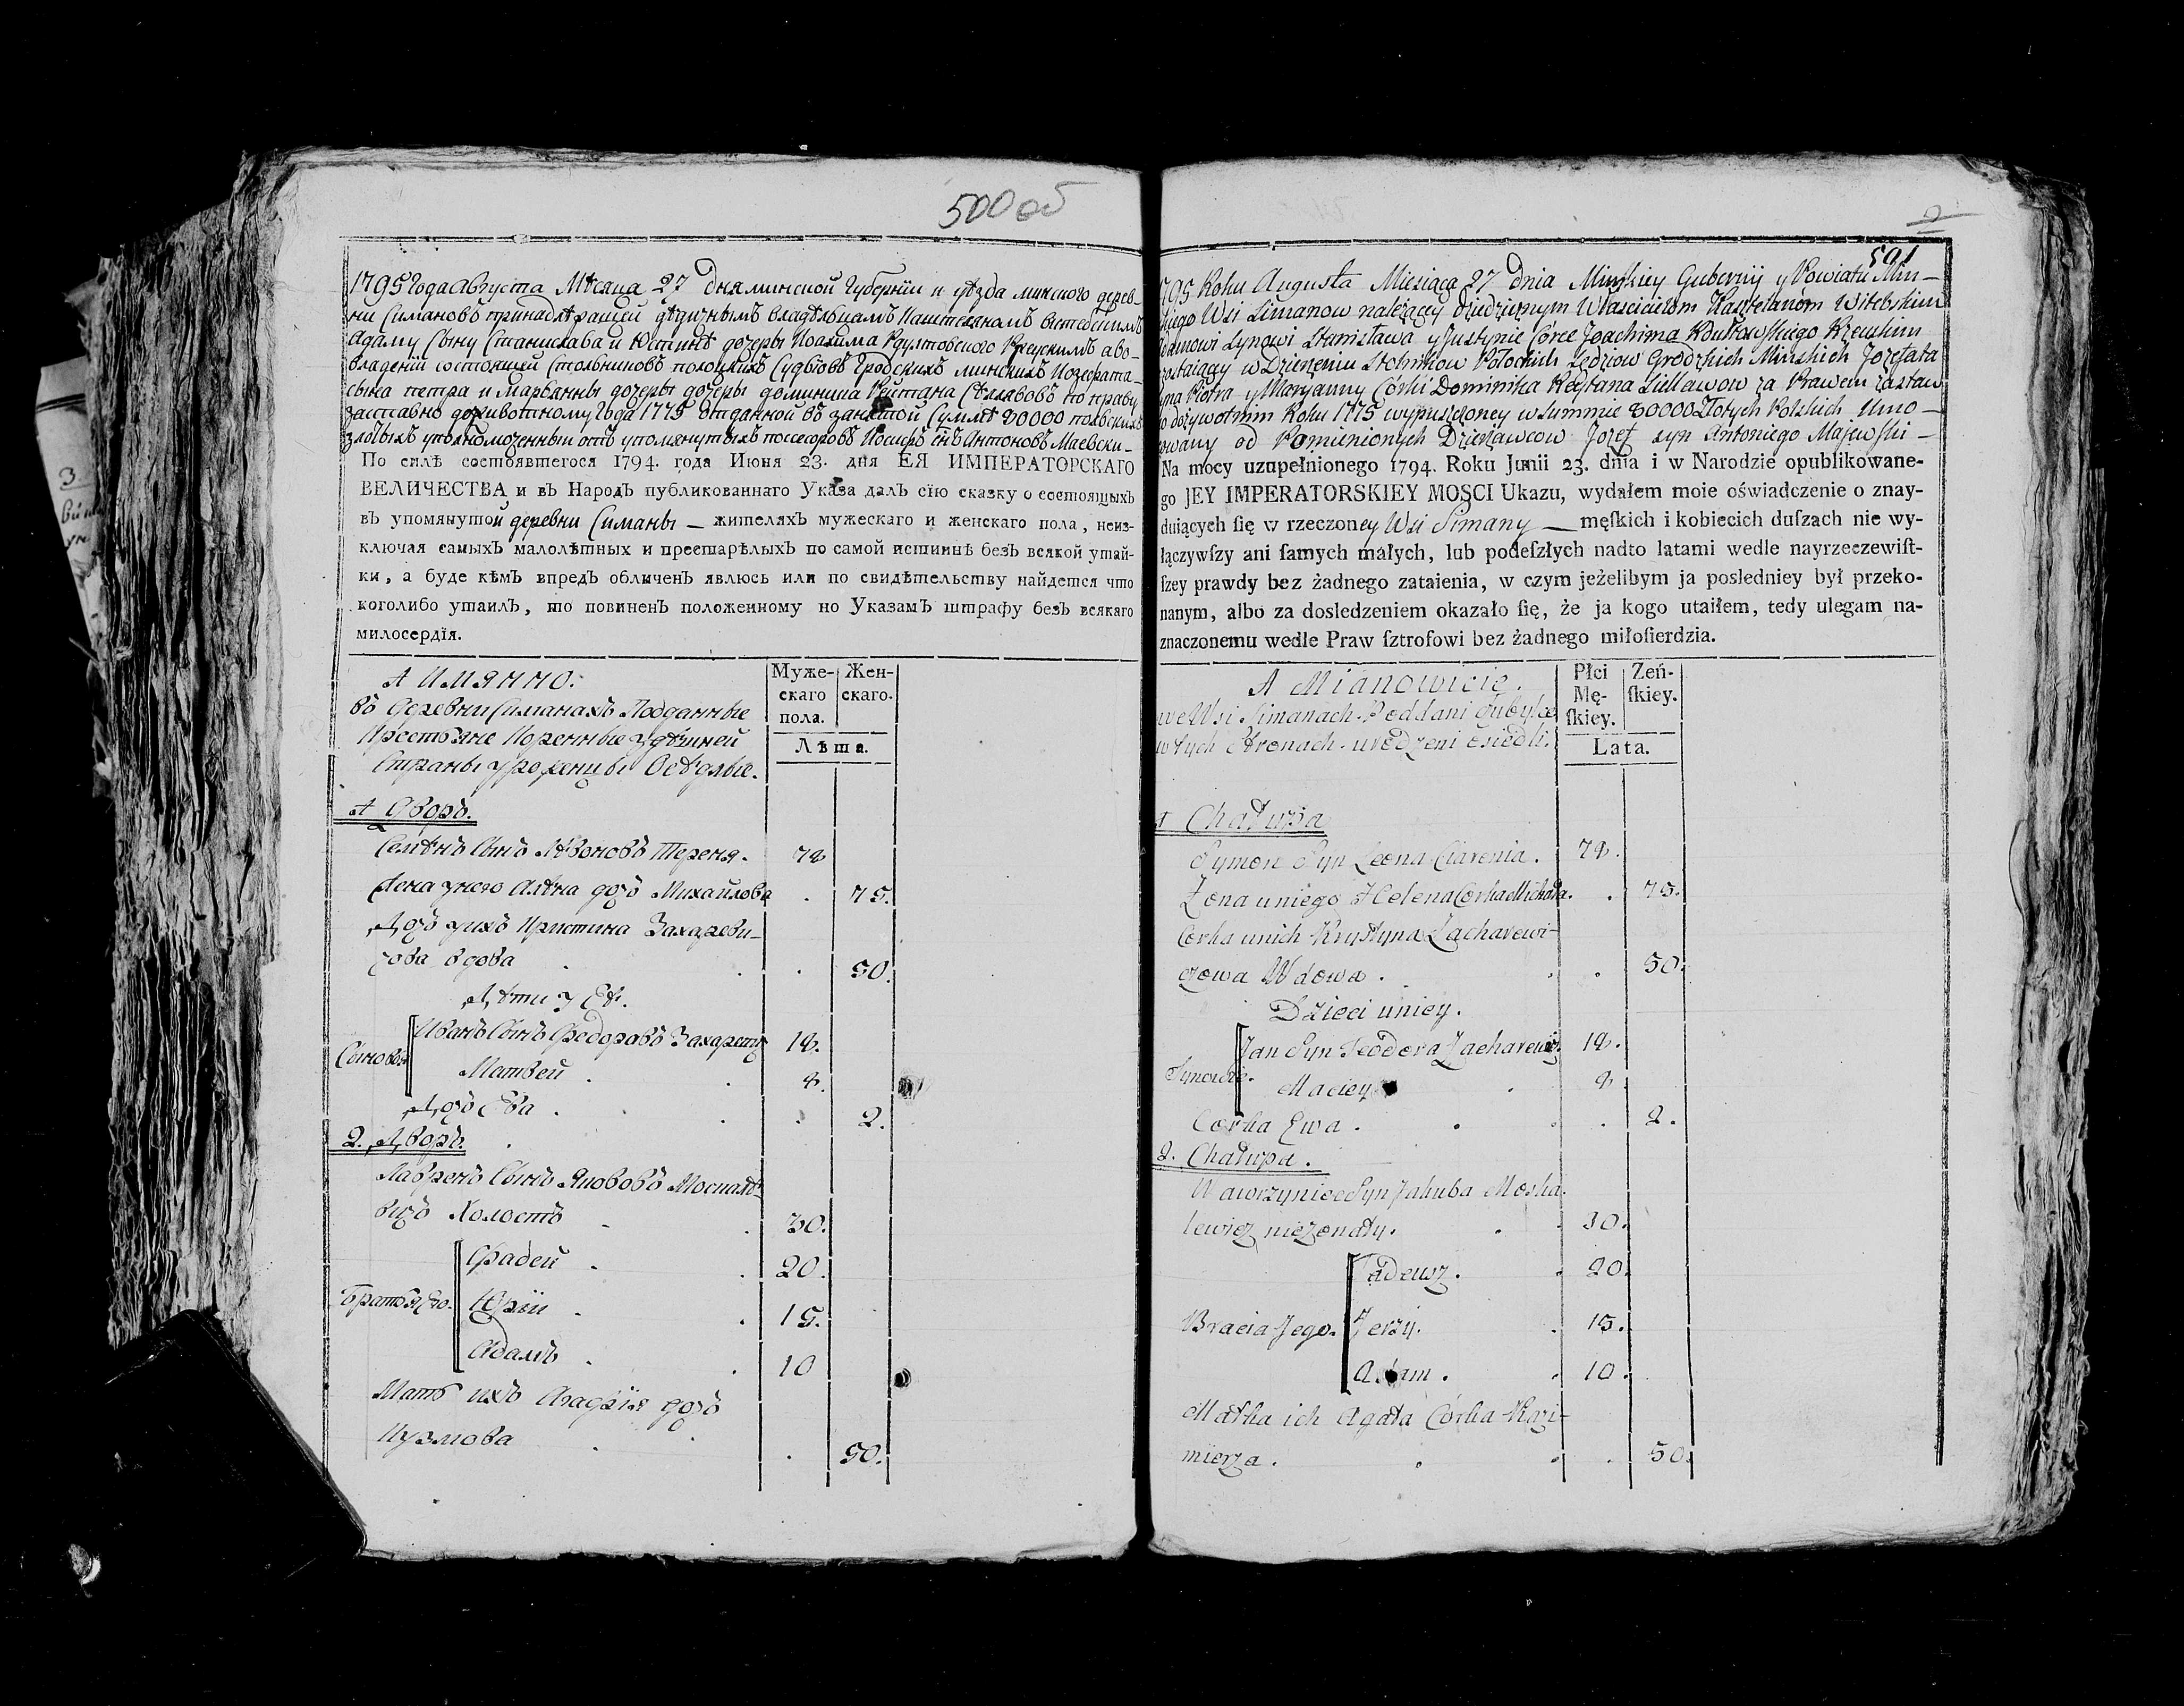 500 об
1795 Года Августа Мѣсяца 27 дня минской Губерніи и уѣзда минского дерев-
ни Симановъ принадлежащей дѣдичнымъ владѣльцамъ Каштеляномъ витебскимъ
Адаму Сыну Станислава и Юстинѣ дочеры Иоахима
владеніи состоящей Стольниковъ полоцкихъ Судьювъ Гродскихъ минскихъ Иозефата
сына петра и Марьянны дочеры дочеры доминика Рейтана по праву
заставно доживотному Года 1775 отданной въ Суммѣ 80000 польскихъ
злотыхъ уполномоченный отъ упомянутыхъ поссесоровъ Иосифъ Сынъ Антоновъ Маевски-
По силѣ состоявшегося 1794. года Июня 23. дня ЕЯ ИМПЕРАТОРСКАГО
ВЕЛИЧЕСТВА и въ Народъ публикованнаго Указа далъ сїю сказку о состоящыхъ
въ упомянутой деревни Симаны — жителяхъ мужескаго и женскаго пола, неиз-
ключая самыхъ малолѣтныхъ и престарѣлыхъ по самой истиннѣ безъ всякой утай-
ки, а буде кѣмъ впредъ обличенъ явлюсь или по свидѣтельству найдется что
коголибо утаилъ, то повиненъ положенному по Указамъ штрафу безъ всякаго
милосердїя.
А ИМЯННО:
Муже-
скаго
пола.
Жен-
скаго.
Лѣта.
въ деревни Симанахъ Подданные
Крестьяне Коренные здѣшней
Страны уроженцы Осѣдлые.
1 Дворъ.
Семѣнъ Сынъ Лѣвоновъ Переня. 78
Жена унего Алѣна дочь Михайлова . 75.
Дочь уихъ Кристина Захареви-
чова вдова . 50.
Дѣти у Еѣ.
Сыновья Иванъ Сынъ Федоровъ Захаревичъ 18.
Матвей . 8.
Дочь Ева . 2.
2. Дворъ.
Лавренъ Сынъ Якововъ Москале-
вичъ Холостъ 30.
Братья Его. Фадей . 20.
Юрїи . 15.
Адамъ . 10
Мать ихъ Агафїя дочь
Кузмова . 50.
2
501
1795 Roku Augusta Miesiąca 27 dnia Minskiey Gubernij y Powiatu Min-
skiego Wsi Simanow należącey dziedzicznym Włascicielom Kasztelanom Witebskim
Adamowi Synowi Stanisława y Justynie Corce Joachima
zostaiący w Dzierżeniu Stolnikow Połockich Sędziow Grodzkich Minskich Jozefata
syna Piotra y Maryanny Corki Dominika Reytana za Prawem zastaw
no dożywotnim Roku 1775 wypuszczoney w Summie 80000 Złotych Polskich Umo-
cowany od Pomienionych Dzierżawcow Jozef syn Antoniego Majewski-
Na mocy uzupełnionego 1794. Roku Junii 23. dnia i w Narodzie opublikowane-
go JEY IMPERATORSKIEY MOSCI Ukazu, wydałem moie oświadczenie o znay-
duiących ſię w rzeczoney Wsi Simany — męſkich i kobiecich duſzach nie wy-
łączywſzy ani ſamych małych, lub podeſzłych nadto latami wedle nayrzeczewiſt-
ſzey prawdy bez żadnego zataienia, w czym jeżelibym ja posledniey był przeko-
nanym, albo za dosledzeniem okazało ſię, że ja kogo utaiłem, tedy ulegam na-
znaczonemu wedle Praw ſztrofowi bez żadnego miłoſierdzia.
A Mianowicie.
Płci
Mę-
ſkiey.
Zeń-
ſkiey.
Lata.
we Wsi Simanach Poddani
wtych Stronach urodzeni osiedli.
1 Chałupa
Symon Syn Leona Ciarenia. 78.
Żona uniego Helena Corka Michała. . 75.
Corka unich Krystyna Zacharewi-
czowa Wdowa . 50.
Dzieci uniey.
Synowie. Jan Syn Teodora Zacharewicz. 18.
Maciey . 8.
Corka Ewa . 2.
2. Chałupa.
Wawrzyniec Syn Jakuba Moska-
lewicz nieżonaty. 30.
Bracia Jego. Tadeusz. 20.
Jerzy. 15.
Adam. 10.
Matka ich Agata Córka Kazi-
mierza . 50.